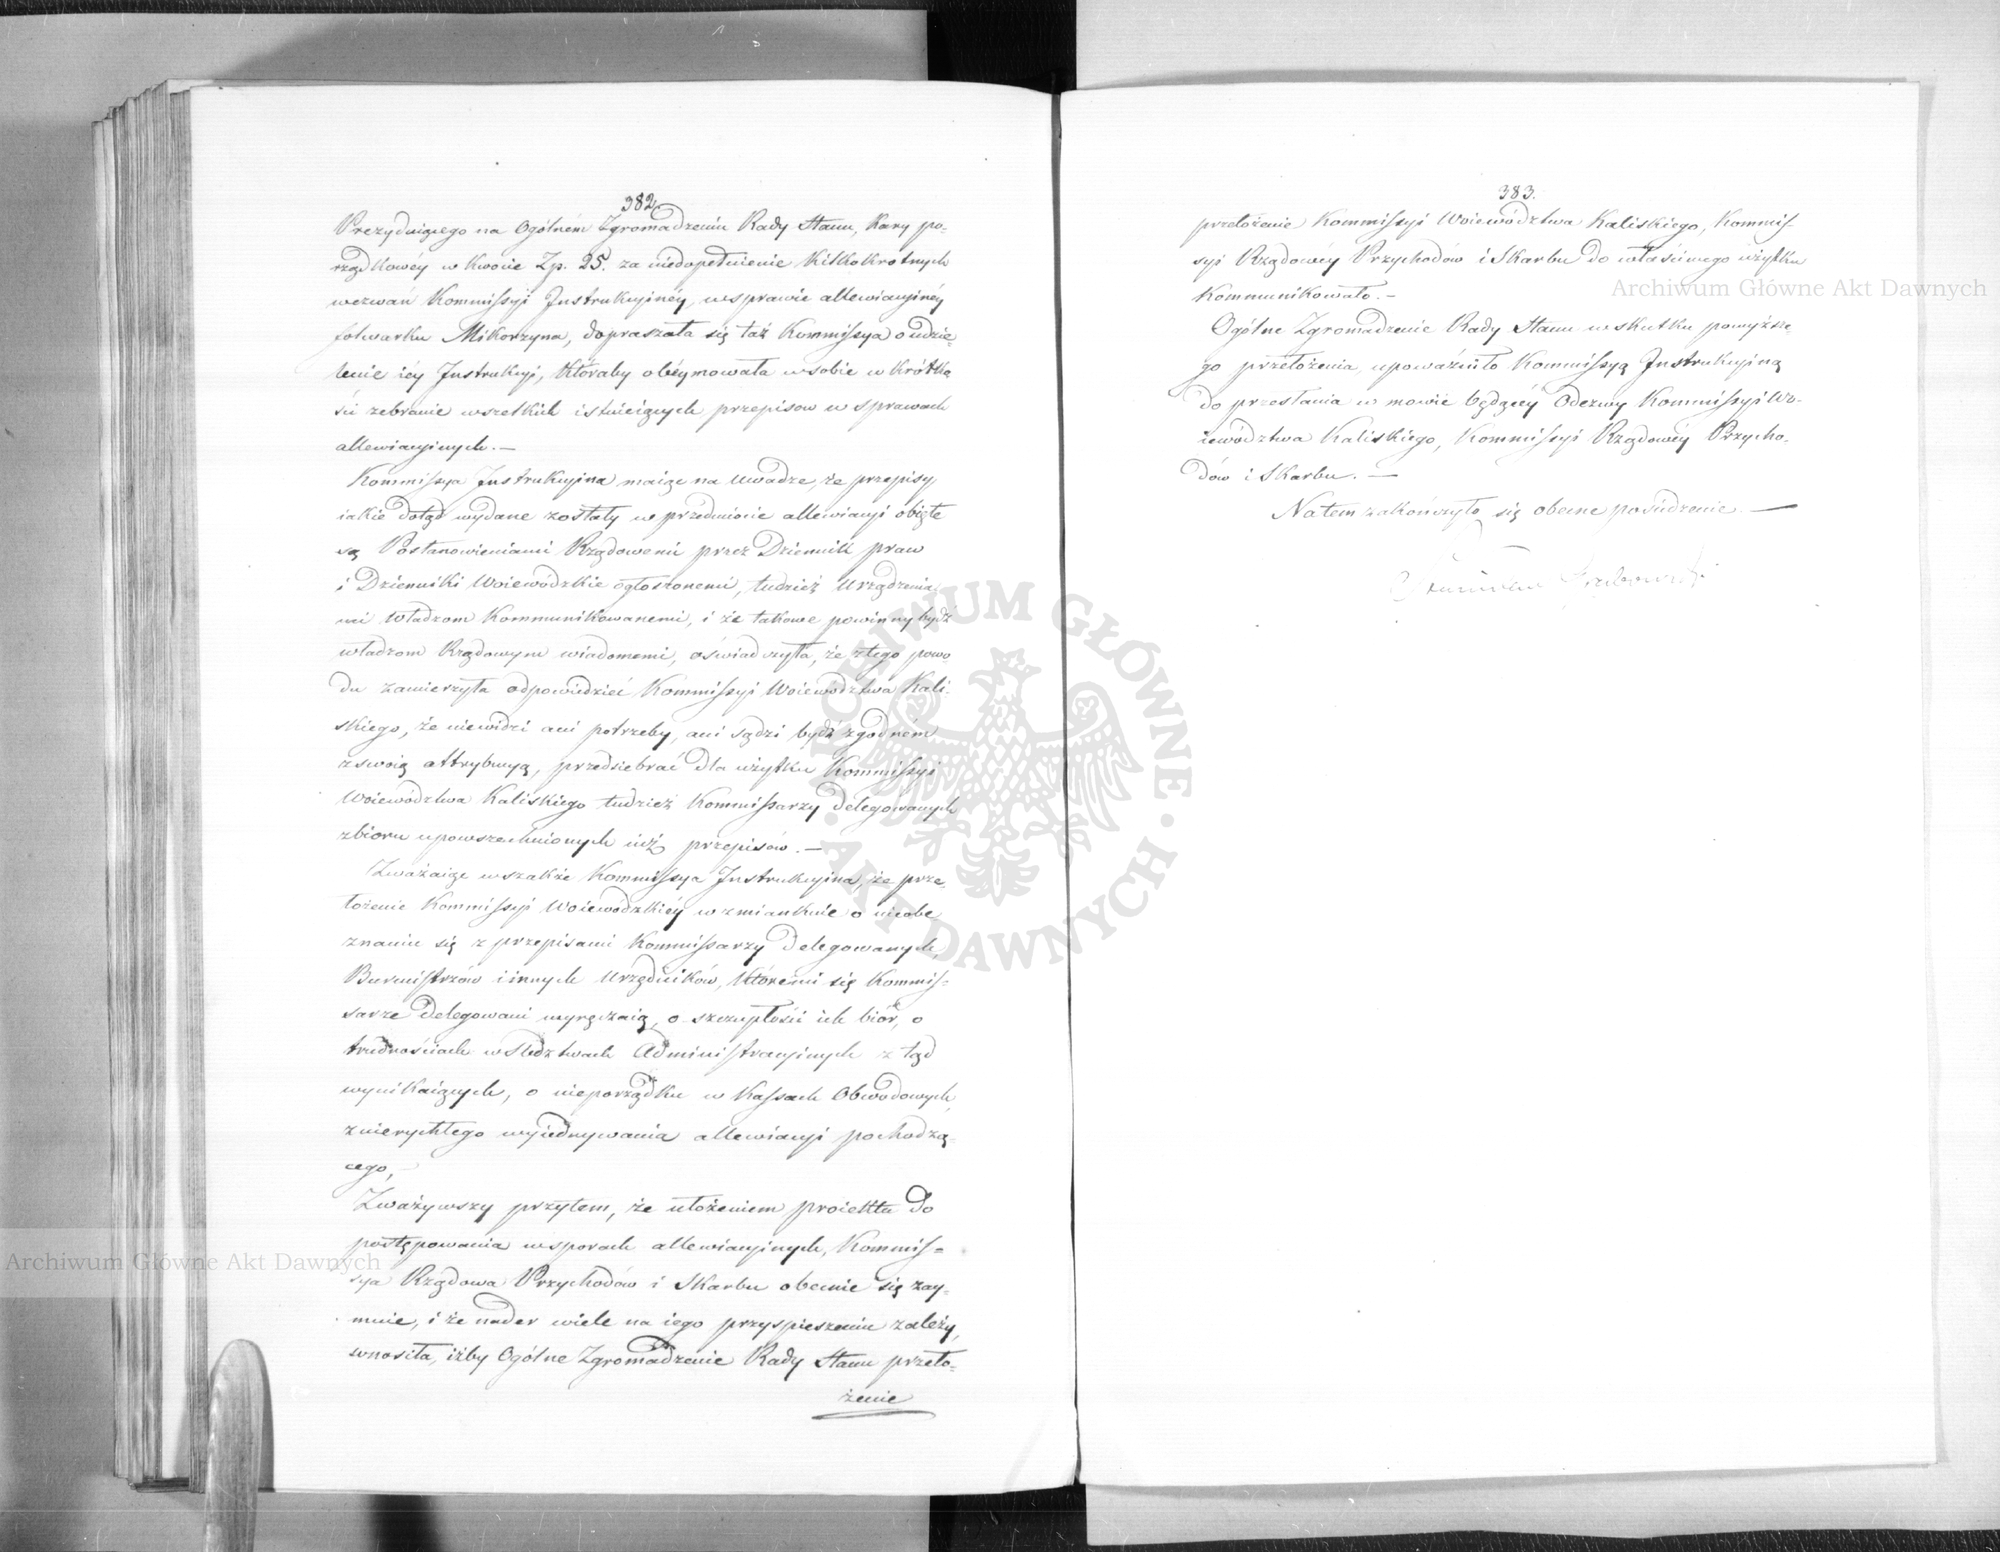 382
Prezyduiącego na Ogólném Zgromadzeniu Rady Stanu, Kary po-
rządkowéy w kwocie Zp. 25. za niedopełnienie kilkokrotnych
wezwań Kommissyi Instrukcyinéy, w sprawie allewiacyinéy
folwarku Mikorzyna, dopraszała się taż Kommissya o udzie-
lenie iéy Instrukcyi, któraby obéymowała w sobie w krótko
ści zebranie wszelkich istnieiących przepisow w sprawach
allewiacyinych. —
Kommissya Instrukcyina maiąc na uwadze, że przepisy
iakie dotąd wydane zostały w przedmiocie allewiacyi obięte
są Postanowieniami Rządowemi przez Dziennik praw
i Dzienniki Woiewódzkie ogłoszonemi, tudzież Urządzenia
mi Władzom Kommunikowanemi, i że takowe powinny bydź
władzom Rządowym wiadomemi, oświadczyła, że z tego powo-
du zamierzyła odpowiedzieć Kommissyi Woiewództwa Kali-
skiego, że niewidzi ani potrzeby, ani sądzi bydź zgodném
z swoią attrybucyą, przedsiebrać dla użytku Kommissyi
Woiewództwa Kaliskiego tudzież Kommissarzy delegowanych
zbioru upowszechnionych iuż przepisów. —
Zważaiąc wszakże Kommissya Instrukcyina, że prze-
łożenie Kommissyi Woiewódzkiéy wzmiankuie o nieobe
znaniu się z przepisami Kommissarzy delegowanych,
Burmistrzów i innych Urzędników, któremi się Kommis-
sarze delegowani wyręczaią, o szczupłości ich biór, o
trudnościach w śledztwach Administracyinych z tąd
wynikaiących, o nieporządku w Kassach Obwodowych,
z nierychłego wyiednywania allewiacyi pochodzą-
cego,
Zważywszy przytem, że ułożeniem proiektu do
postępowania w sporach allewiacyinych, Kommis-
sya Rządowa Przychodów i Skarbu obecnie się zay-
muie, i że nader wiele na iego przyspieszeniu zależy,
wnosiła, iżby Ogólne Zgromadzenie Rady Stanu przeło-
żenie
383.
przełożenie Kommissyi Woiewództwa Kaliskiego, Kommis-
syi Rządowéy Przychodów i Skarbu do właściwego użytku
Kommunikowało. —
Ogólne Zgromadzenie Rady Stanu w skutku powyższe-
go przełożenia, upoważniło Kommissyą Instrukcyiną
do przesłania w mowie będącéy Odezwy Kommissyi Wo-
iewództwa Kaliskiego, Kommissyi Rządowéy Przycho-
dów i Skarbu. —
Na tem zakończyło się obecne posiedzenie. —
Stanisław Grabowski
Archiwum Główne Akt Dawnych
Archiwum Główne Akt Dawnych
ARCHIWUM GŁÓWNE · AKT DAWNYCH ·